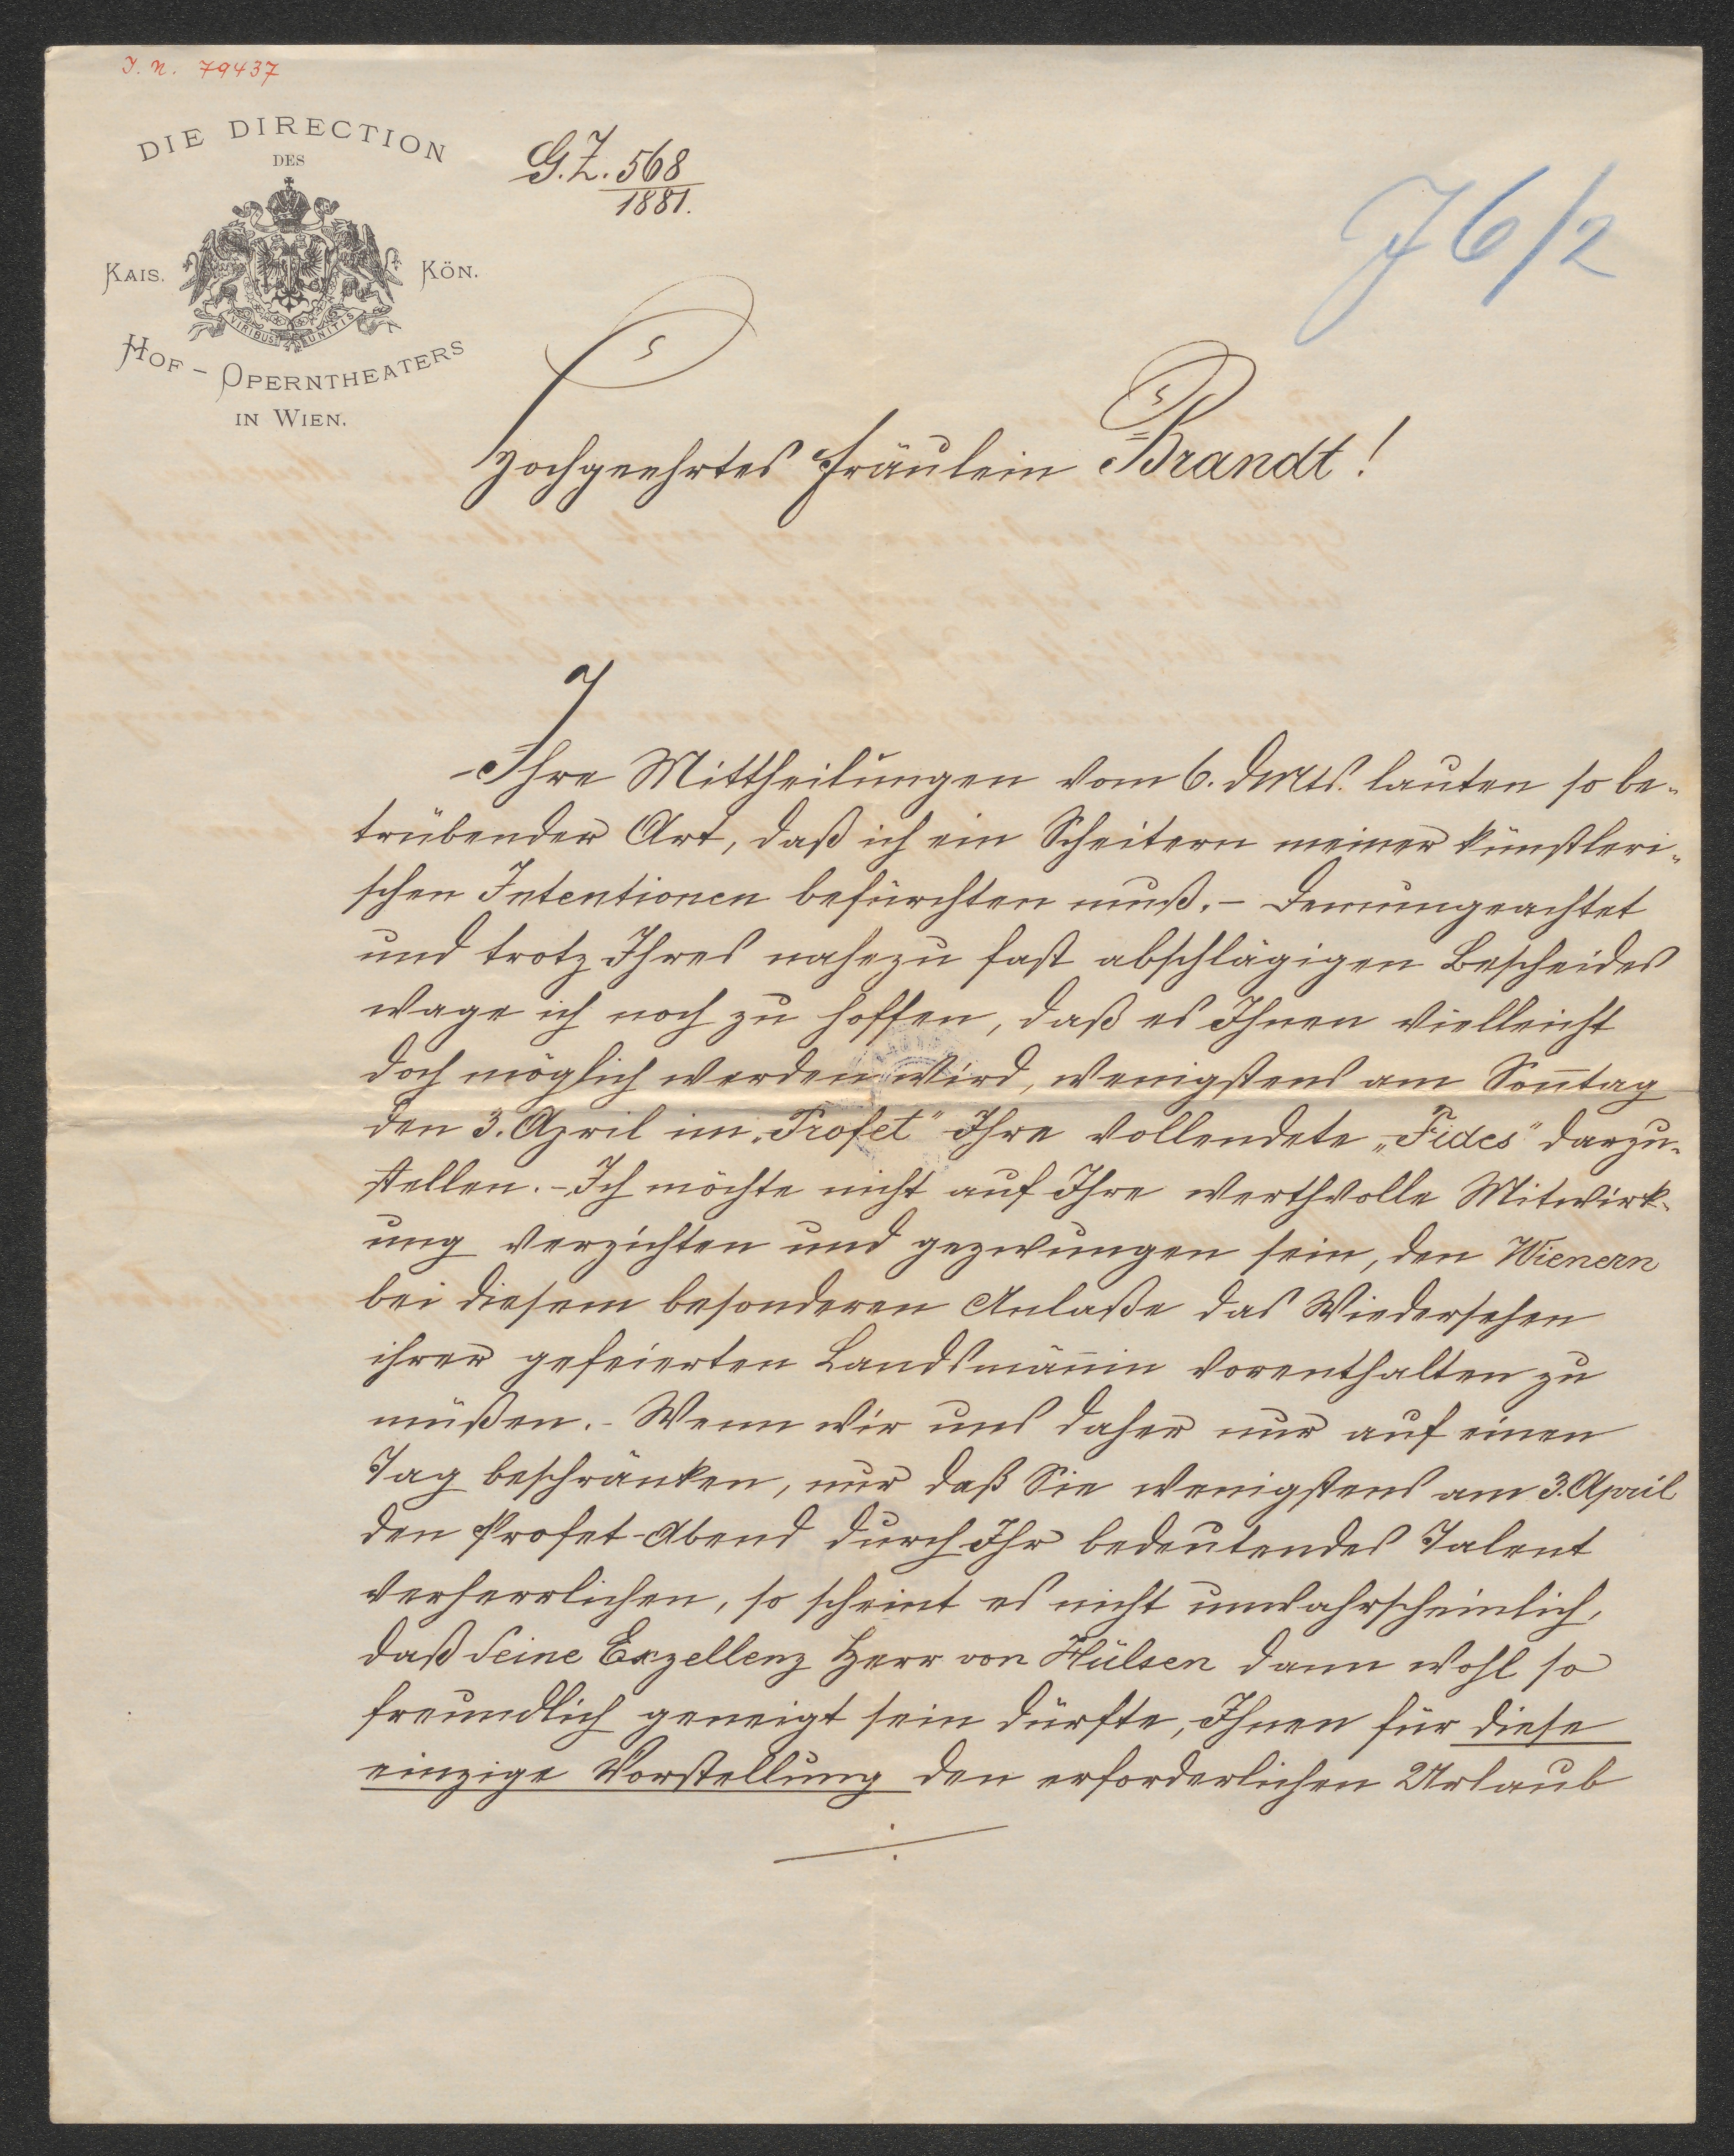 I. N. 79437
DIE DIRECTION
DES
KAIS. KÖN.
VIRIBUS UNITIS
HOF-OPERNTHEATERS
IN WIEN.
G.Z. 568
1881.
J 6/2
Hochgeehrtes Fräulein Brandt!
Ihre Mittheilungen vom 6. d. Mts. lauten so be-
trübender Art, daß ich ein Scheitern meiner künstleri-
schen Intentionen befürchten muß. – Demungeachtet
und trotz Ihres nahezu fast abschlägigen Bescheides
wage ich noch zu hoffen, daß es Ihnen vielleicht
doch möglich werden wird, wenigstens am Son̄tag
den 3. April im „Profet" Ihre vollendete „Fides" darzu-
stellen. – Ich möchte nicht auf Ihre werthvolle Mitwirk-
ung verzichten und gezwungen sein, den Wienern
bei diesem besonderen Anlaße das Wiedersehen
ihrer gefeierten Landsmän̄in vorenthalten zu
müßen. – Wenn wir uns daher nur auf einen
Tag beschränken, nur daß Sie wenigstens am 3. April
den Profet-Abend durch Ihr bedeutendes Talent
verherrlichen, so scheint es nicht unwahrscheinlich,
daß Seine Exzellenz Herr von Hülsen dann wohl so
freundlich geneigt sein dürfte, Ihnen für diese
einzige Vorstellung den erforderlichen Urlaub